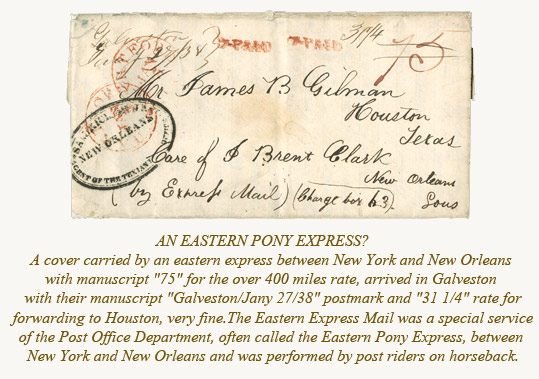 Galveston
Jany 27/38
PAID PAID
31 1/4
75
Mr James B Gilman
Houston
Texas
NEW ORLEANS
AGENT OF THE TEXIAN
Care of J Brent Clark
New Orleans
(by Express Mail) (Charge box 63) Lous
AN EASTERN PONY EXPRESS?
A cover carried by an eastern express between New York and New Orleans
with manuscript "75" for the over 400 miles rate, arrived in Galveston
with their manuscript "Galveston/Jany 27/38" postmark and "31 1/4" rate for
forwarding to Houston, very fine.The Eastern Express Mail was a special service
of the Post Office Department, often called the Eastern Pony Express, between
New York and New Orleans and was performed by post riders on horseback.